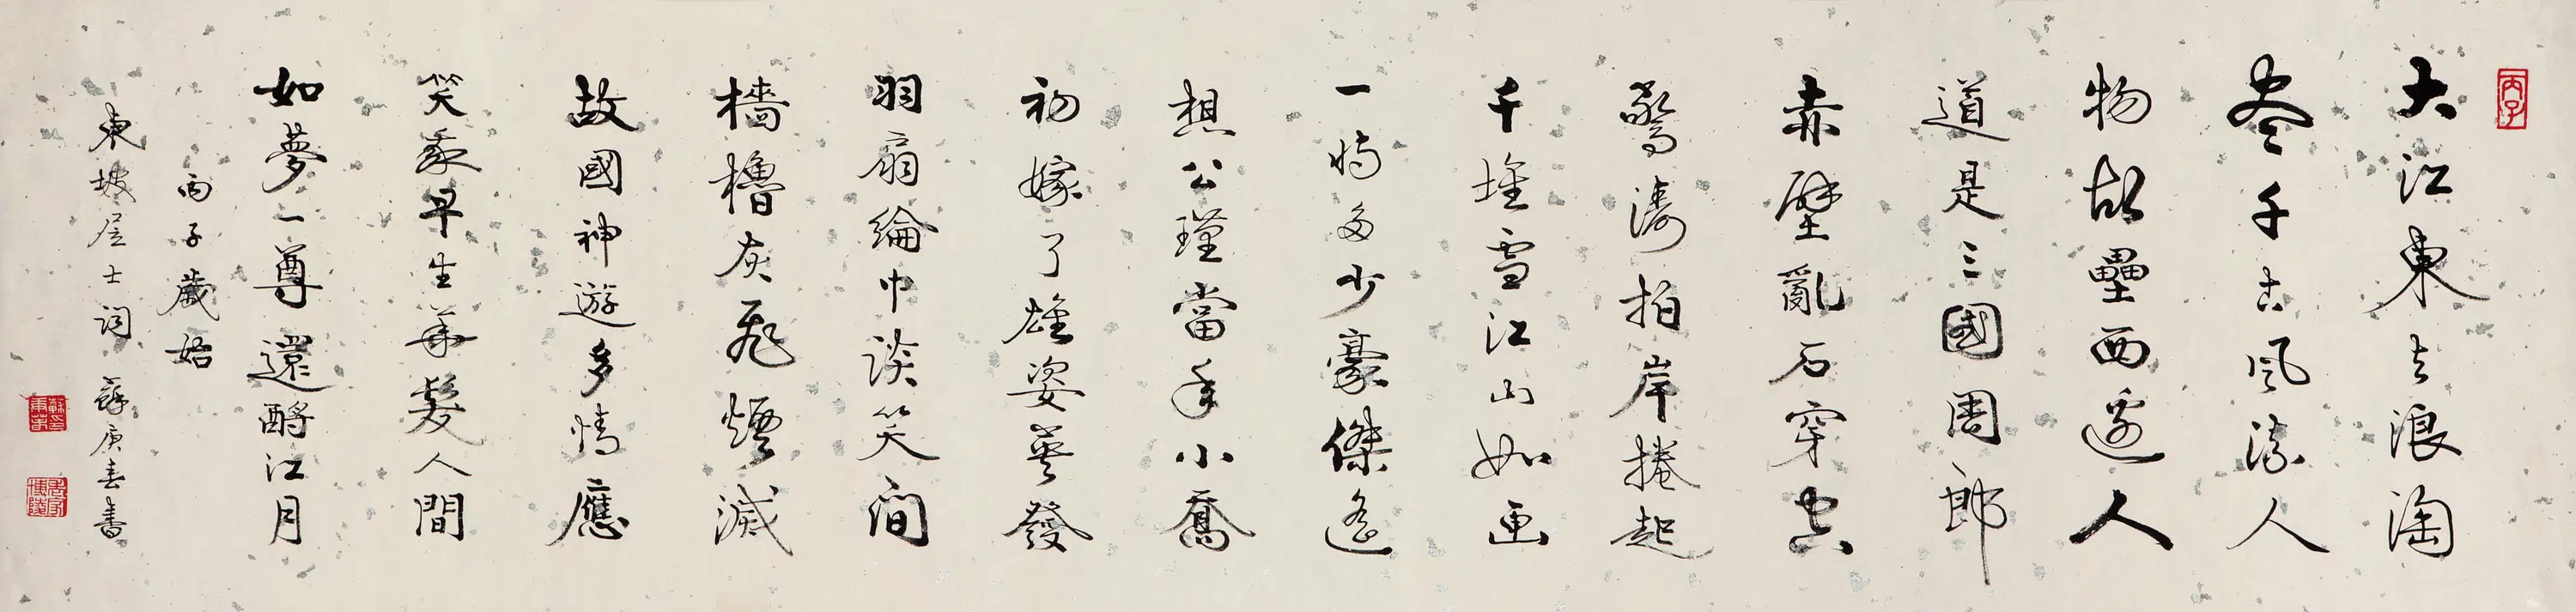 丙子
大江東去浪淘
尽千古風流人
物故壘西邊人
道是三國周郎
赤壁亂石穿空
驚濤拍岸捲起
千堆雪江山如画
一時多少豪傑遙
想公瑾當年小喬
初嫁了雄姿英發
羽扇綸巾談笑間
檣櫓灰飛煙滅
故國神遊多情應
笑我早生華髮人間
如夢一尊還酹江月
丙子歲始
東坡居士詞 蘇庚春書